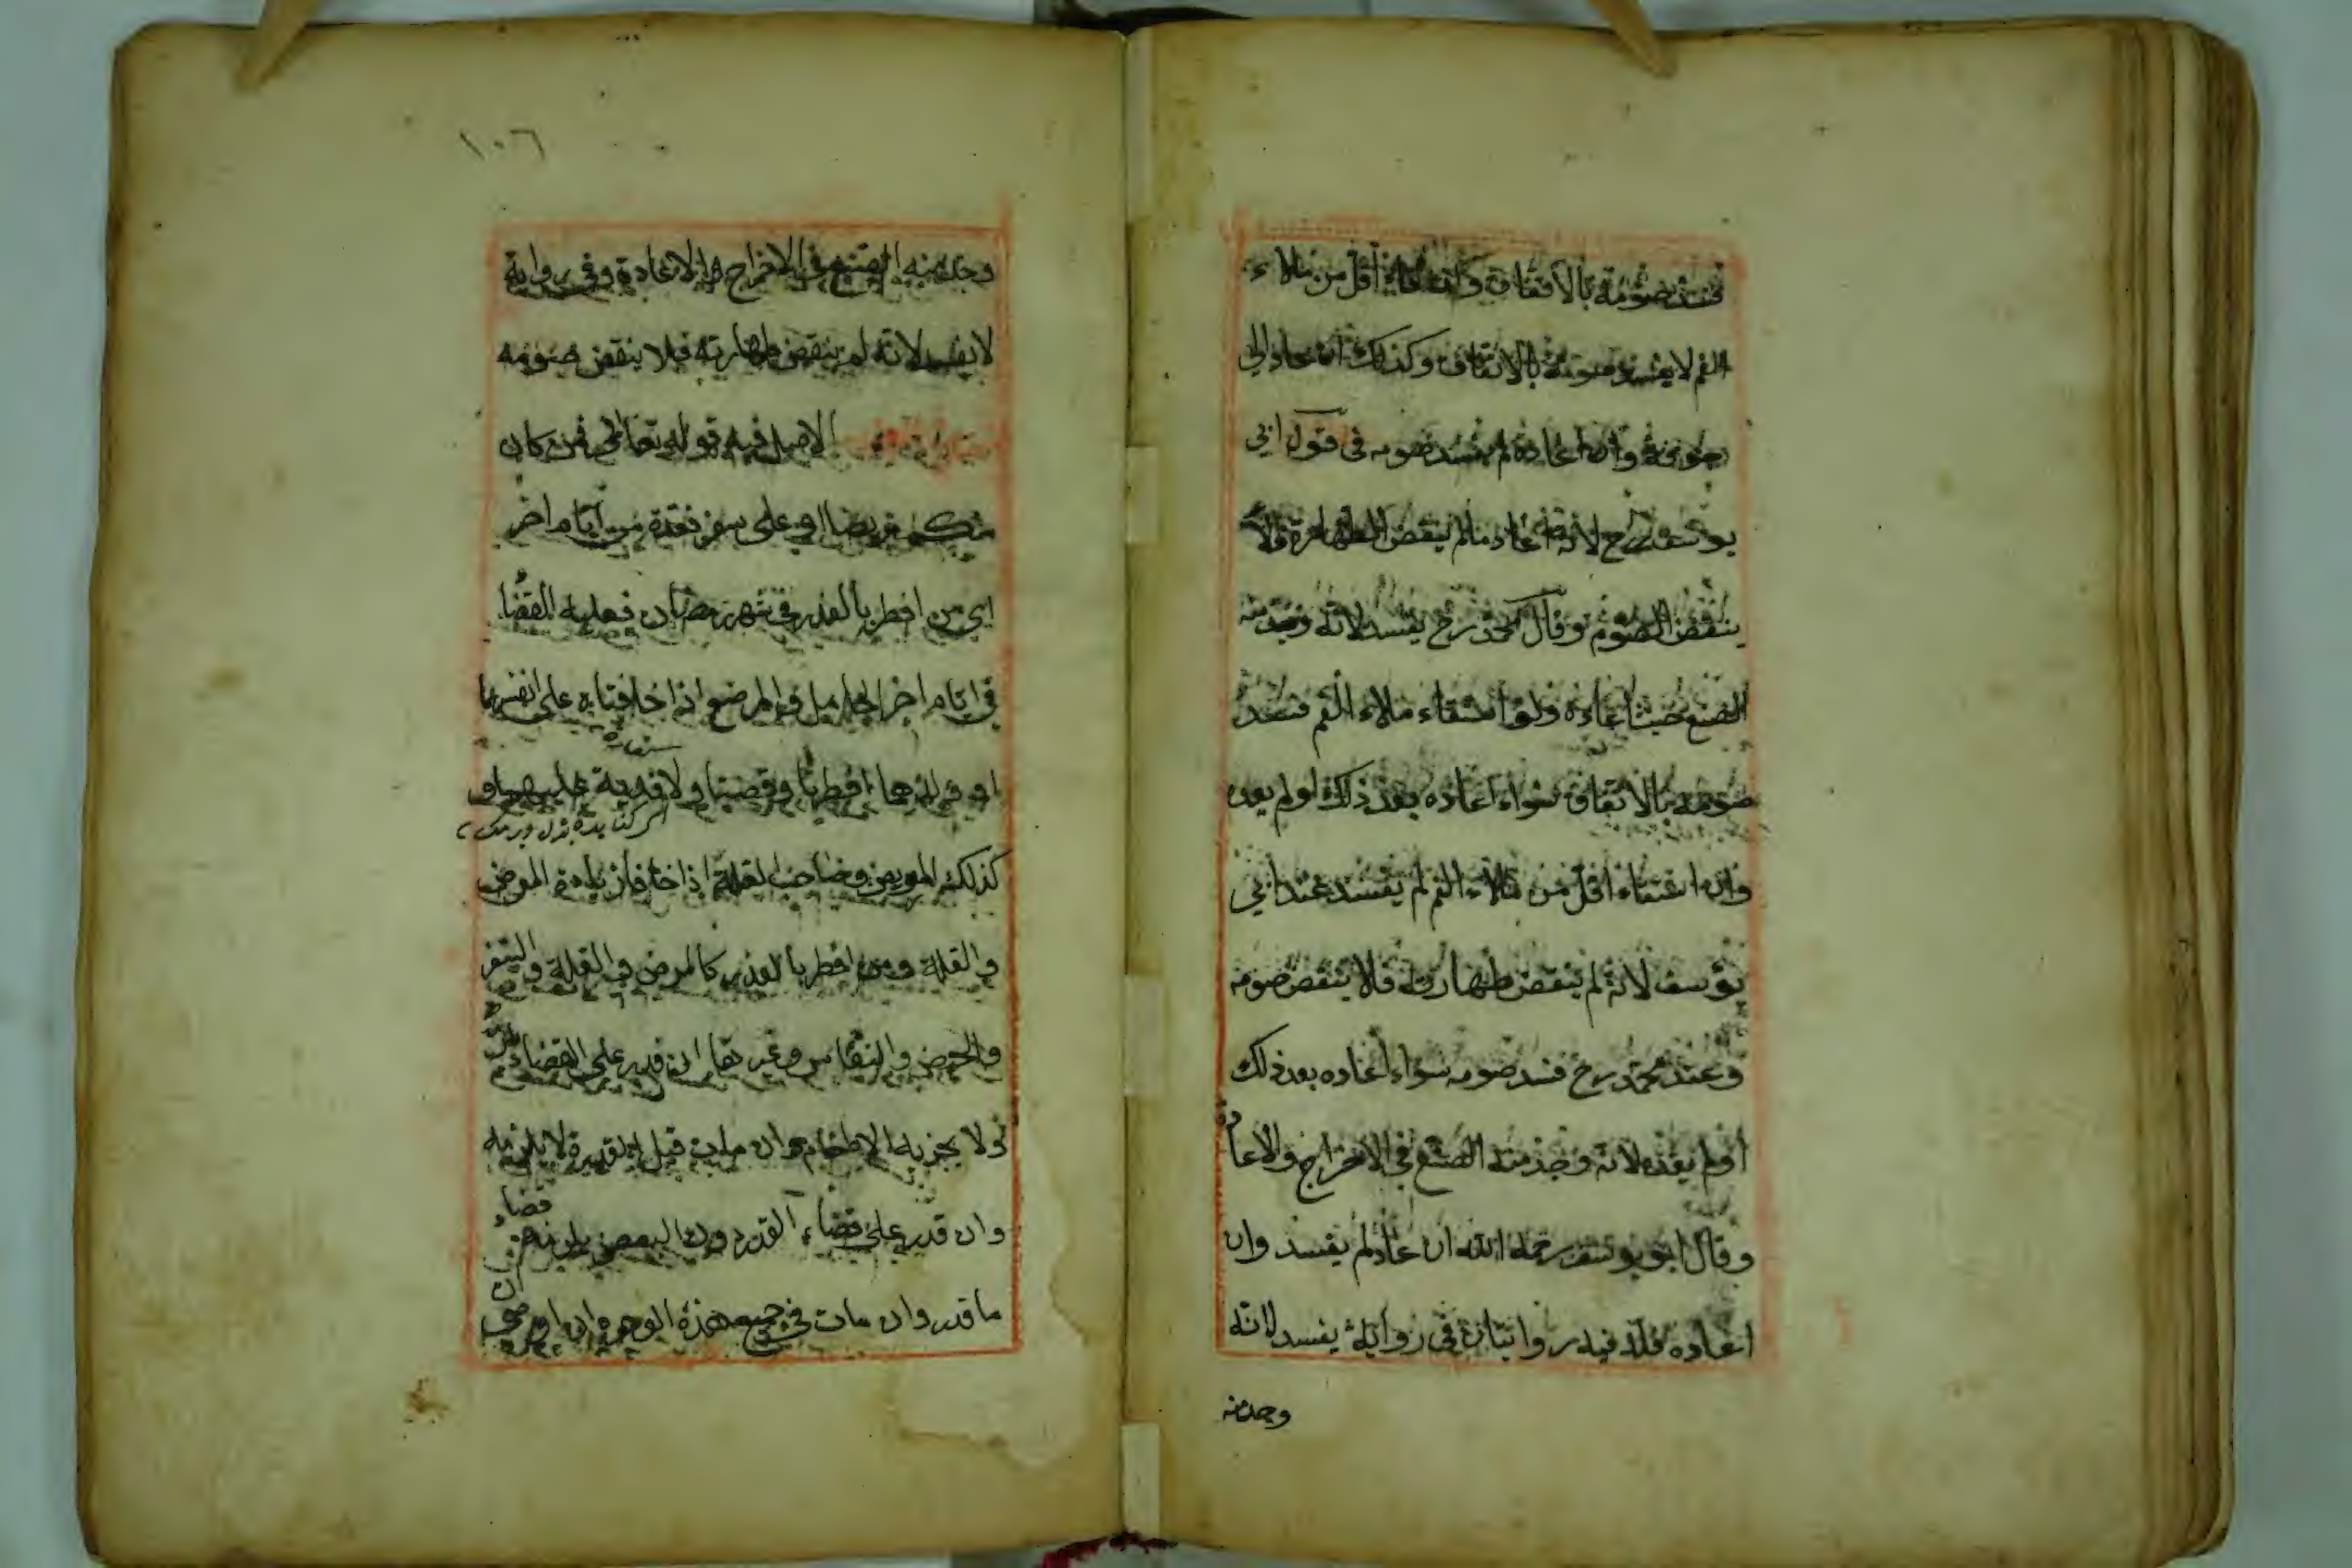 فسد صومه بالاتفاق وان قاء اقل من ملاء
الفم لا يفسد صومه بالاتفاق وكذلك ان عاد الى
جوفه وان اعاده لم يفسد صومه فى قول ابى
يوسف رح لانه اعاد ما لم ينقض الطهارة ولا
ينقض الصوم وقال محمد رح يفسد لانه وجد منه
الصنع حيث اعاده ولو استقاء ملاء الفم فسد
صومه بالاتفاق سواء اعاده بعد ذلك او لم يعده
وان استقاء اقل من ملاء الفم لم يفسد عند ابى
يوسف لانه لم ينقض طهارته فلا ينقض صومه
وعند محمد رح فسد صومه سواء اعاده بعد ذلك
او لم يعده لانه وجد منه الصنع فى الاخراج والاعادة
وقال ابو يوسف رحمه الله ان عاد لم يفسد وان
اعاده فله فيه روايتان فى رواية يفسد لانه
وجد منه
١٠٦
وجد منه الصنع فى الاخراج والاعادة وفى رواية
لا يفسد لانه لم ينقض طهارته فلا ينقض صومه
الاصل فيه قوله تعالى فمن كان
منكم مريضا او على سفر فعدة من ايام اخر
اى من افطر بالعذر فى شهر رمضان فعليه القضا
فى ايام اخر الحامل والمرضع اذا خافتا على انفسهما
او ولدهما افطرتا وقضيتا ولا فدية عليهما و
كذلك المريض وصاحب العلة اذا خاف ازدياد المرض
والعلة ومن افطر بالعذر كالمرض والعلة والسفر
والحيض والنفاس وغيرها ان قدر على القضاء
ولا يجزيه الاطعام وان مات قبل القدرة لا يلزمه
وان قدر على قضاء القدر دون البعض يلزمه قضاء
ما قدر وان مات فى جميع هذه الوجوه ان اوصى